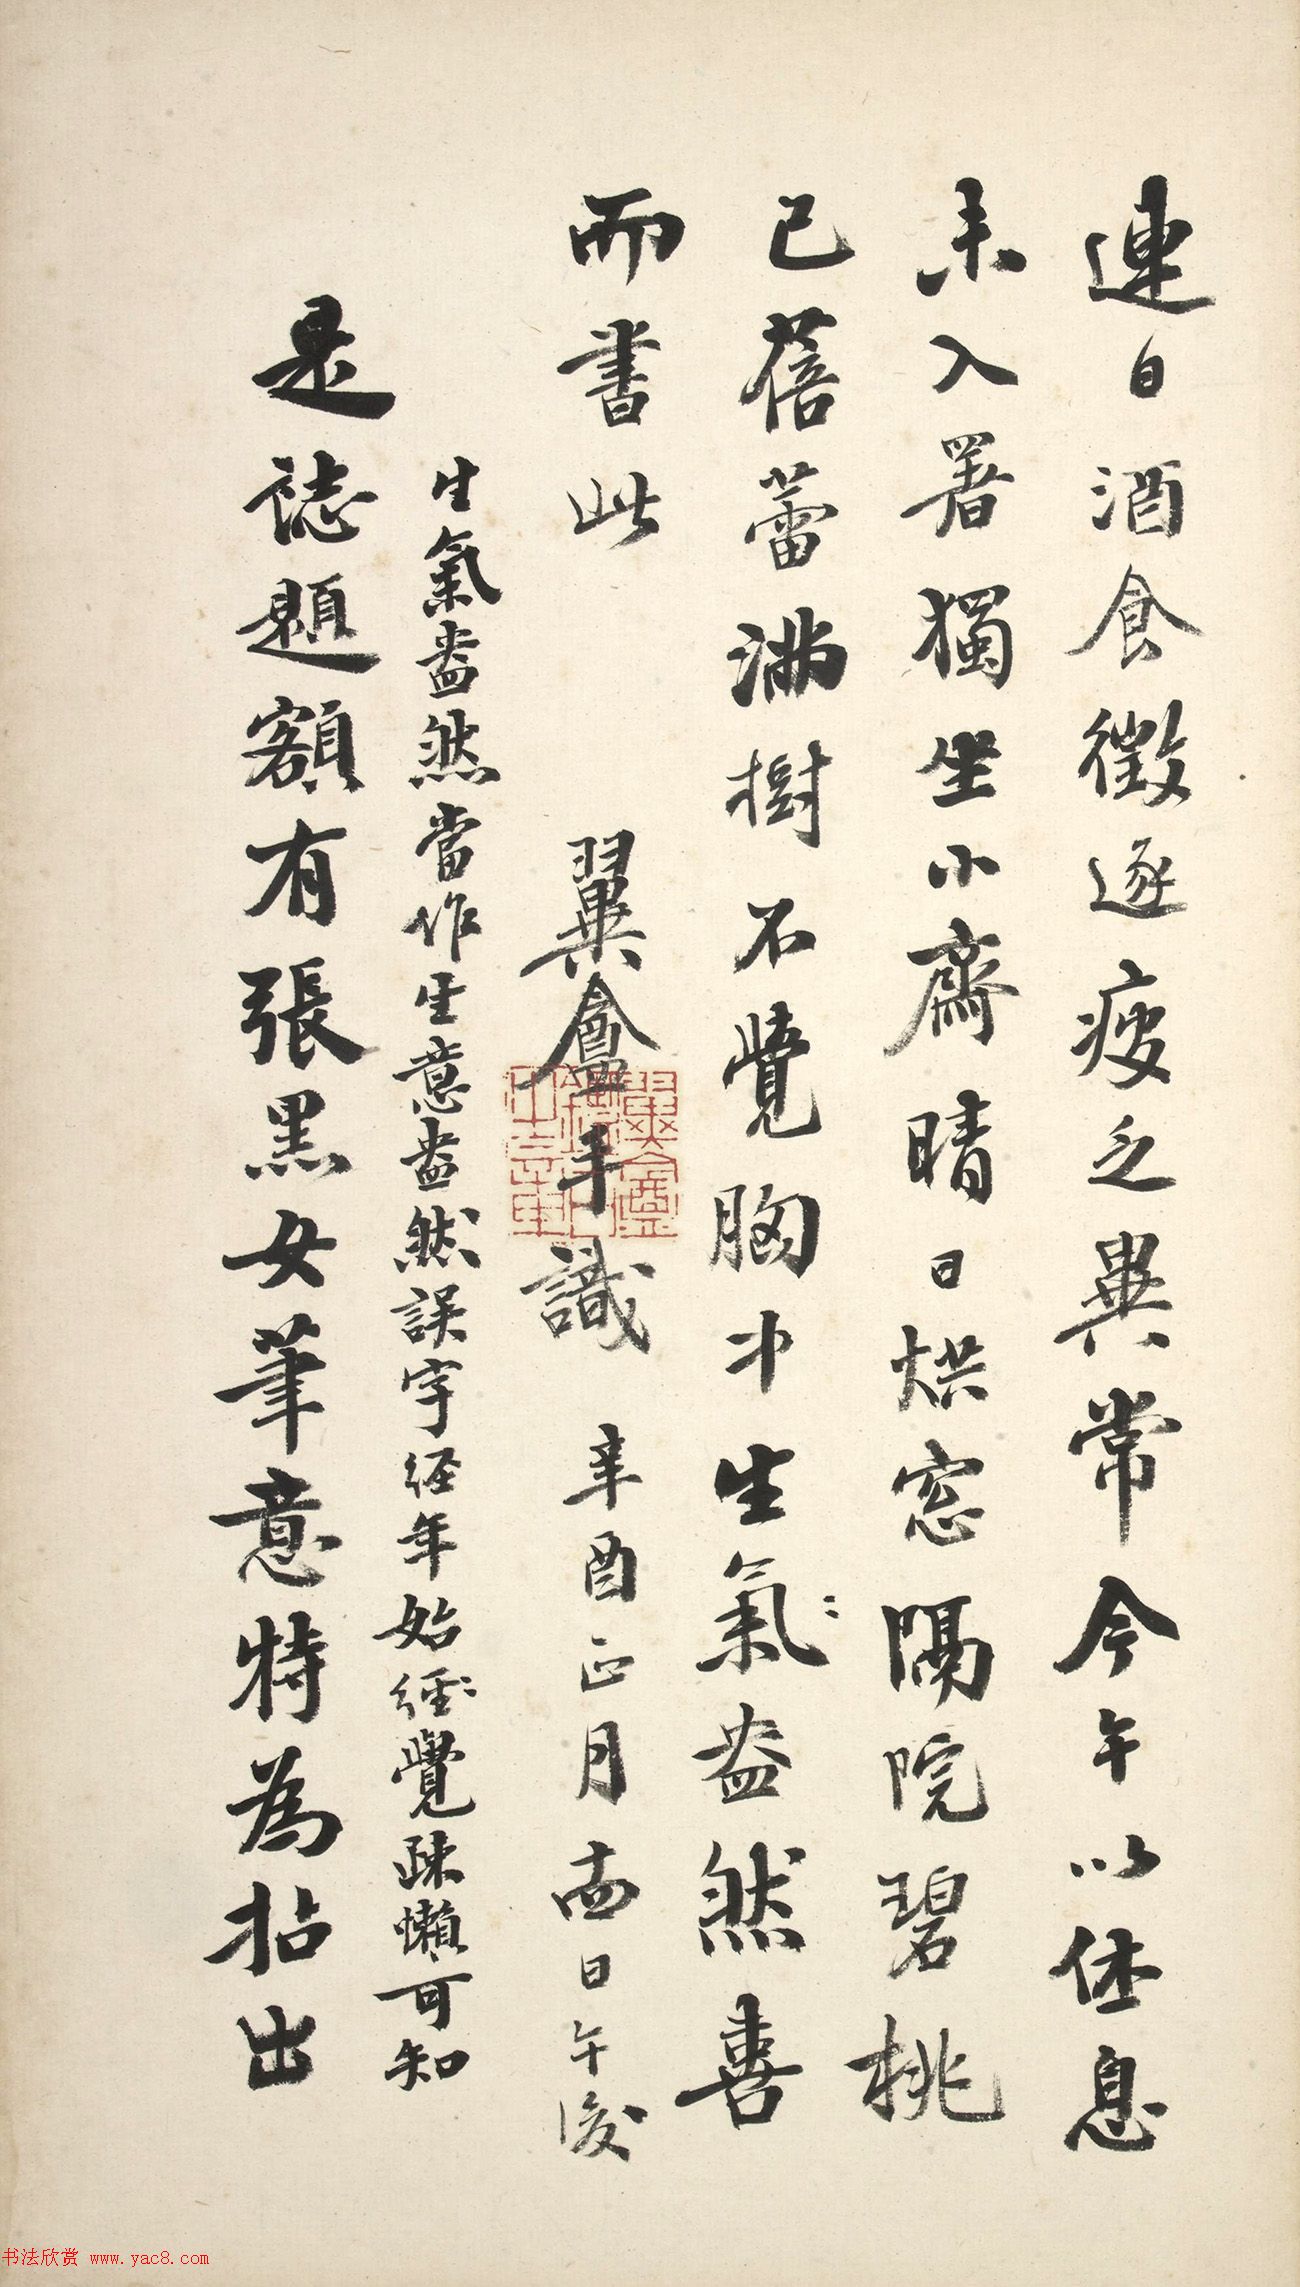 連日酒食徵逐疲乏異常今午以休息
未入署獨坐小齋晴日烘窓隔院碧桃
已蓓蕾滿樹不覺胸中生氣盎然喜
而書此 翼盦手識 辛酉正月十四日午後
生氣盎然當作生意盎然誤字經年始經覺疎懶可知
是誌題額有張黑女筆意特為拈出
书法欣赏 www.yac8.com